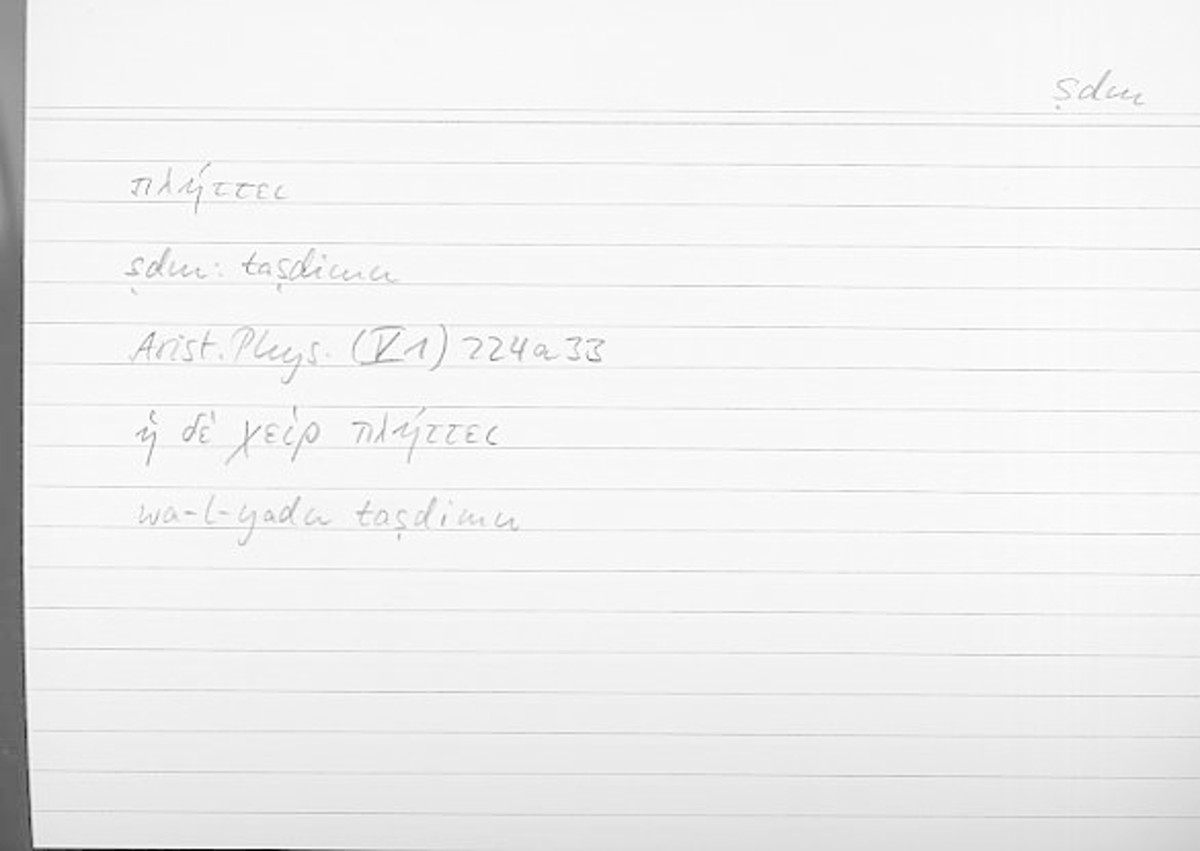 ṣdm
πλήττει
ṣdm: taṣdimu
Arist. Phys. (V 1) 224a33
ἡ δὲ χεὶρ πλήττει
wa-l-yadu taṣdimu